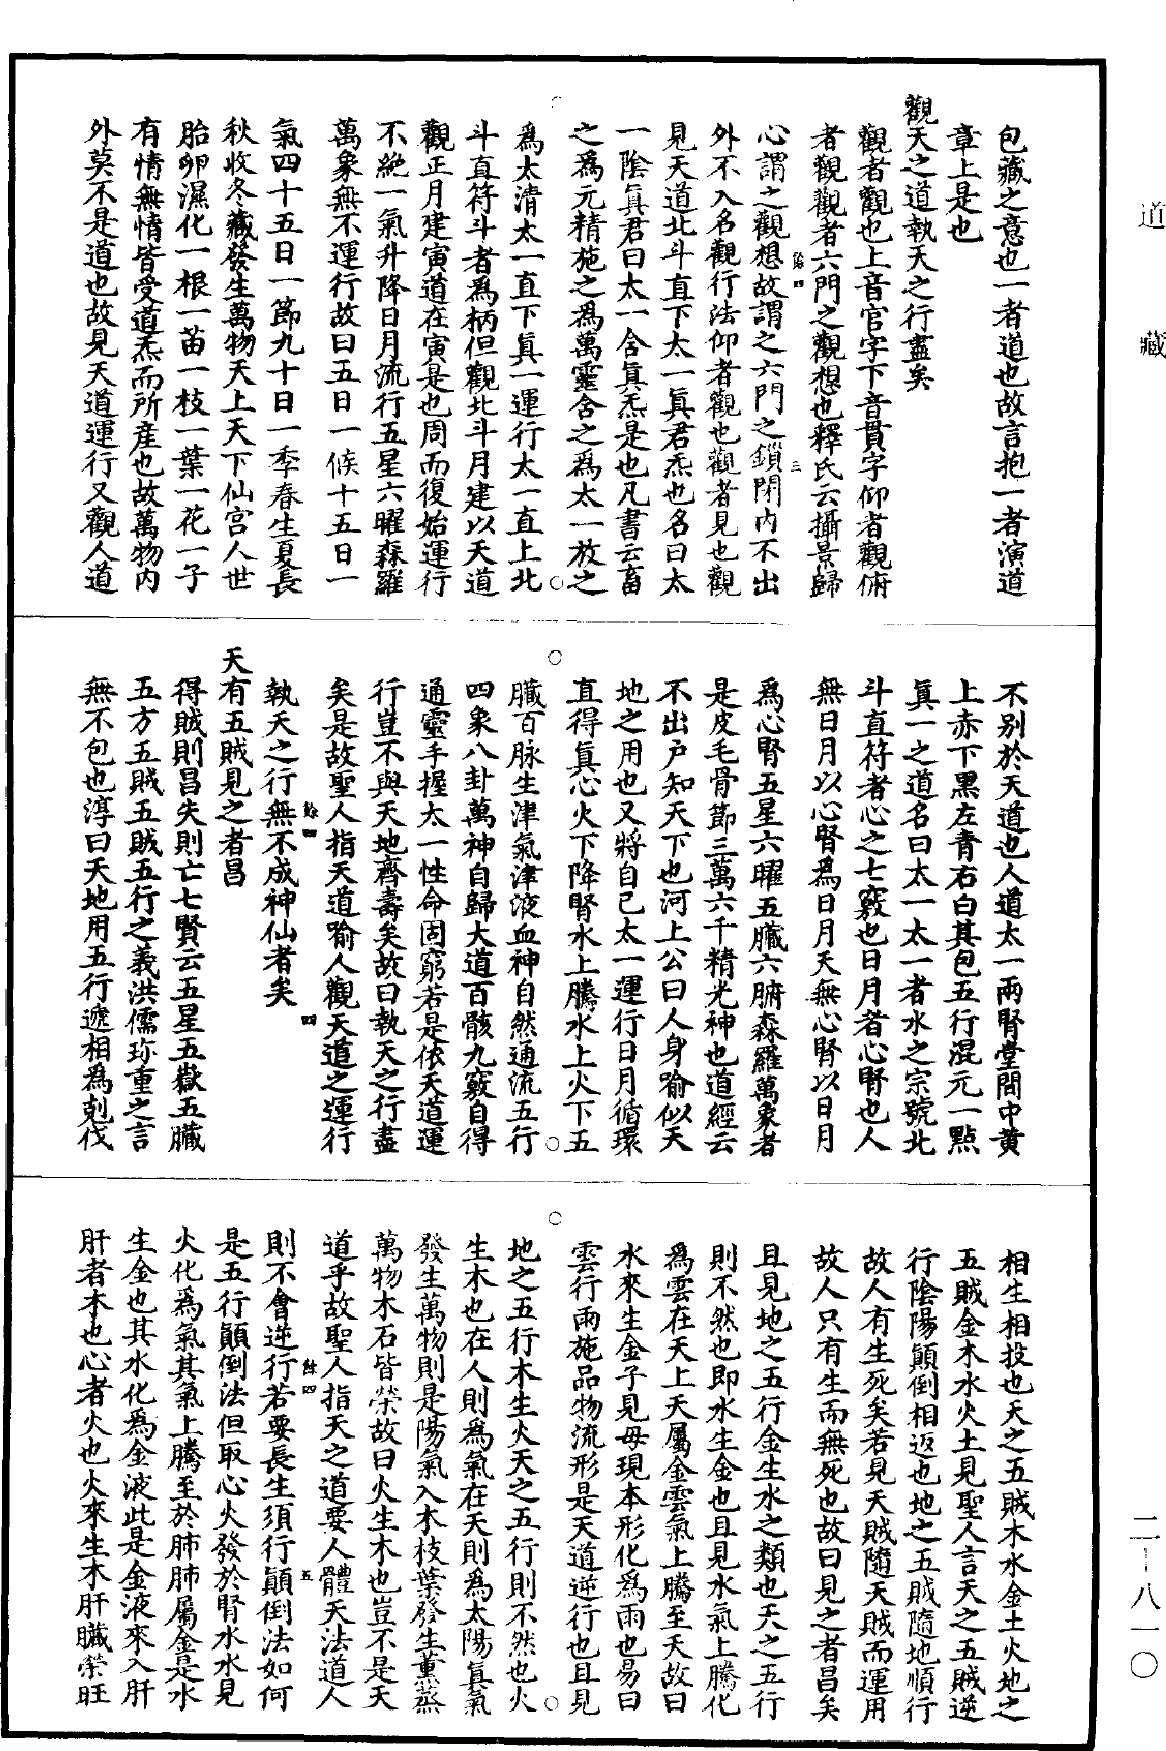 道藏
包藏之意也一者道也故言抱一者演道
章上是也
觀天之道執天之行盡矣
觀者觀也上音官字下音貫字仰者觀俯
者觀觀者六門之觀想也釋氏云攝景歸
心謂之觀想故謂之六門之鎖閉內不出
外不入名觀行法仰者觀也觀者見也觀
見天道北斗直下太一真君炁也名曰太
一陰真君曰太一含真炁是也凡書云畜
之為元精施之為萬靈含之為太一放之
為太清太一直下真一運行太一直上北
斗直符斗者為柄但觀北斗月建以天道
觀正月建寅道在寅是也周而復始運行
不絶一氣升降日月流行五星六曜森羅
萬象無不運行故曰五日一候十五日一
氣四十五日一節九十日一季春生夏長
秋收冬藏發生萬物天上天下仙宮人世
胎卵濕化一根一苗一枝一葉一花一子
有情無情皆受道炁而所産也故萬物內
外莫不是道也故見天道運行又觀人道
不別於天道也人道太一兩腎堂間中黃
上赤下黑左青右白其包五行混元一點
真一之道名曰太一太一者水之宗號北
斗直符者心之七竅也日月者心腎也人
無日月以心腎為日月天無心腎以日月
為心腎五星六曜五臟六腑森羅萬象者
是皮毛骨節三萬六千精光神也道經云
不出户知天下也河上公曰人身喻似天
地之用也又將自己太一運行日月循環
直得真心火下降腎水上騰水上火下五
臟百脉生津氣津液血神自然通流五行
四象八卦萬神自歸大道百骸九竅自得
通靈手握太一性命固窮若是依天道運
行豈不與天地齊壽矣故曰執天之行盡
矣是故聖人指天道喻人觀天道之運行
執天之行無不成神仙者矣
天有五賊見之者昌
得賊則昌失則亡七賢云五星五嶽五臟
五方五賊五賊五行之義洪儒珎重之言
無不包也淳曰天地用五行遞相為剋伐
相生相技也天之五賊木水金土火地之
五賊金木水火土見聖人言天之五賊逆
行陰陽顛倒相返也地之五賊隨地順行
故人有生死矣若見天賊隨天賊而運用
故人只有生而無死也故曰見之者昌矣
且見地之五行金生水之類也天之五行
則不然也即水生金也且見水氣上騰化
為雲在天上天屬金雲氣上騰至天故曰
水來生金子見母現本形化為雨也易曰
雲行雨施品物流形是天道逆行也且見
地之五行木生火天之五行則不然也火
生木也在人則為氣在天則為太陽真氣
發生萬物則是陽氣入木枝葉發生薰蒸
萬物木石皆榮故曰火生木也豈不是天
道乎故聖人指天之道要人體天法道人
則不會逆行若要長生須行顛倒法如何
是五行顛倒法但取心火發於腎水水見
火化為氣其氣上騰至於肺肺屬金是水
生金也其水化為金液此是金液來入肝
肝者木也心者火也火來生木肝臟榮旺
二一八一〇